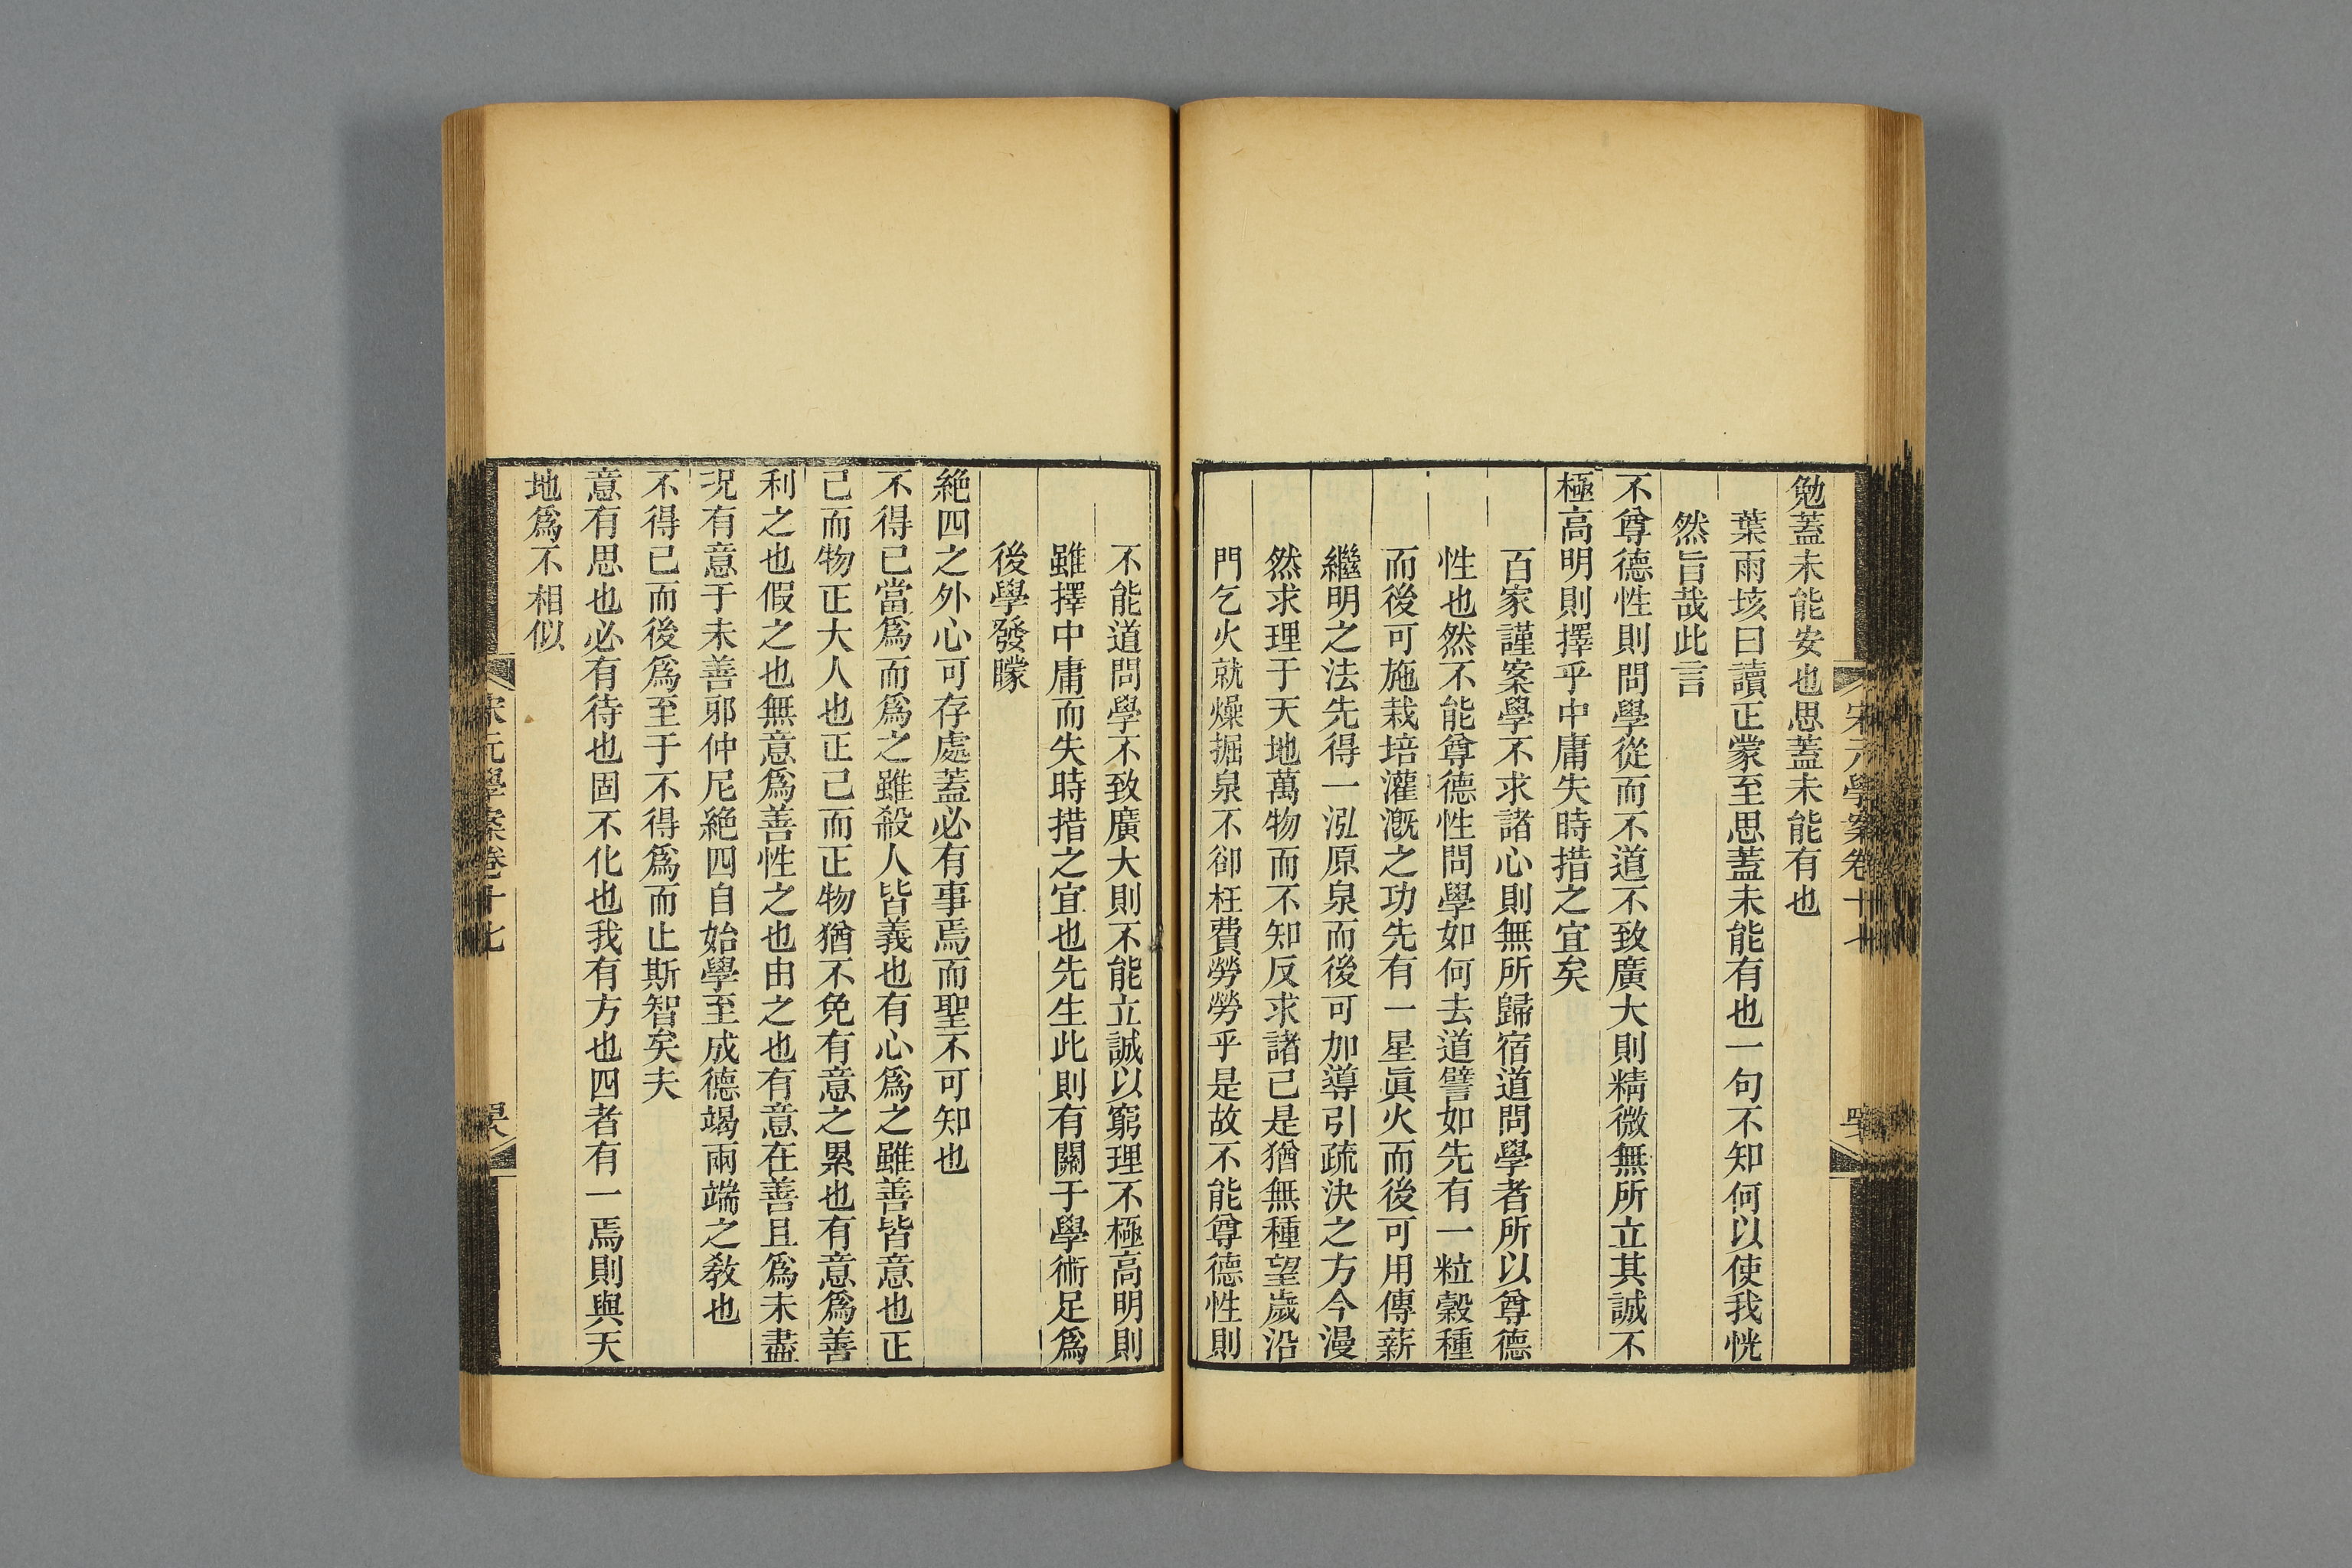 宋元學案卷十七
勉蓋未能安也思蓋未能有也
葉雨垓曰讀正蒙至思蓋未能有也一句不知何以使我恍
然旨哉此言
不尊德性則問學從而不道不致廣大則精微無所立其誠不
極高明則擇乎中庸失時措之宜矣
百家謹案學不求諸心則無所歸宿道問學者所以尊德
性也然不能尊德性問學如何去道譬如先有一粒穀種
而後可施栽培灌溉之功先有一星眞火而後可用傳薪
繼明之法先得一泓原泉而後可加導引疏決之方今漫
然求理于天地萬物而不知反求諸己是猶無種望歲沿
門乞火就燥掘泉不卻枉費勞勞乎是故不能尊德性則
不能道問學不致廣大則不能立誠以窮理不極高明則
雖擇中庸而失時措之宜也先生此則有關于學術足爲
後學發矇
絶四之外心可存處蓋必有事焉而聖不可知也
不得已當爲而爲之雖殺人皆義也有心爲之雖善皆意也正
己而物正大人也正己而正物猶不免有意之累也有意爲善
利之也假之也無意爲善性之也由之也有意在善且爲未盡
況有意于未善邪仲尼絶四自始學至成德竭兩端之教也
不得已而後爲至于不得爲而止斯智矣夫
意有思也必有待也固不化也我有方也四者有一焉則與天
地爲不相似
宋元學案卷十七